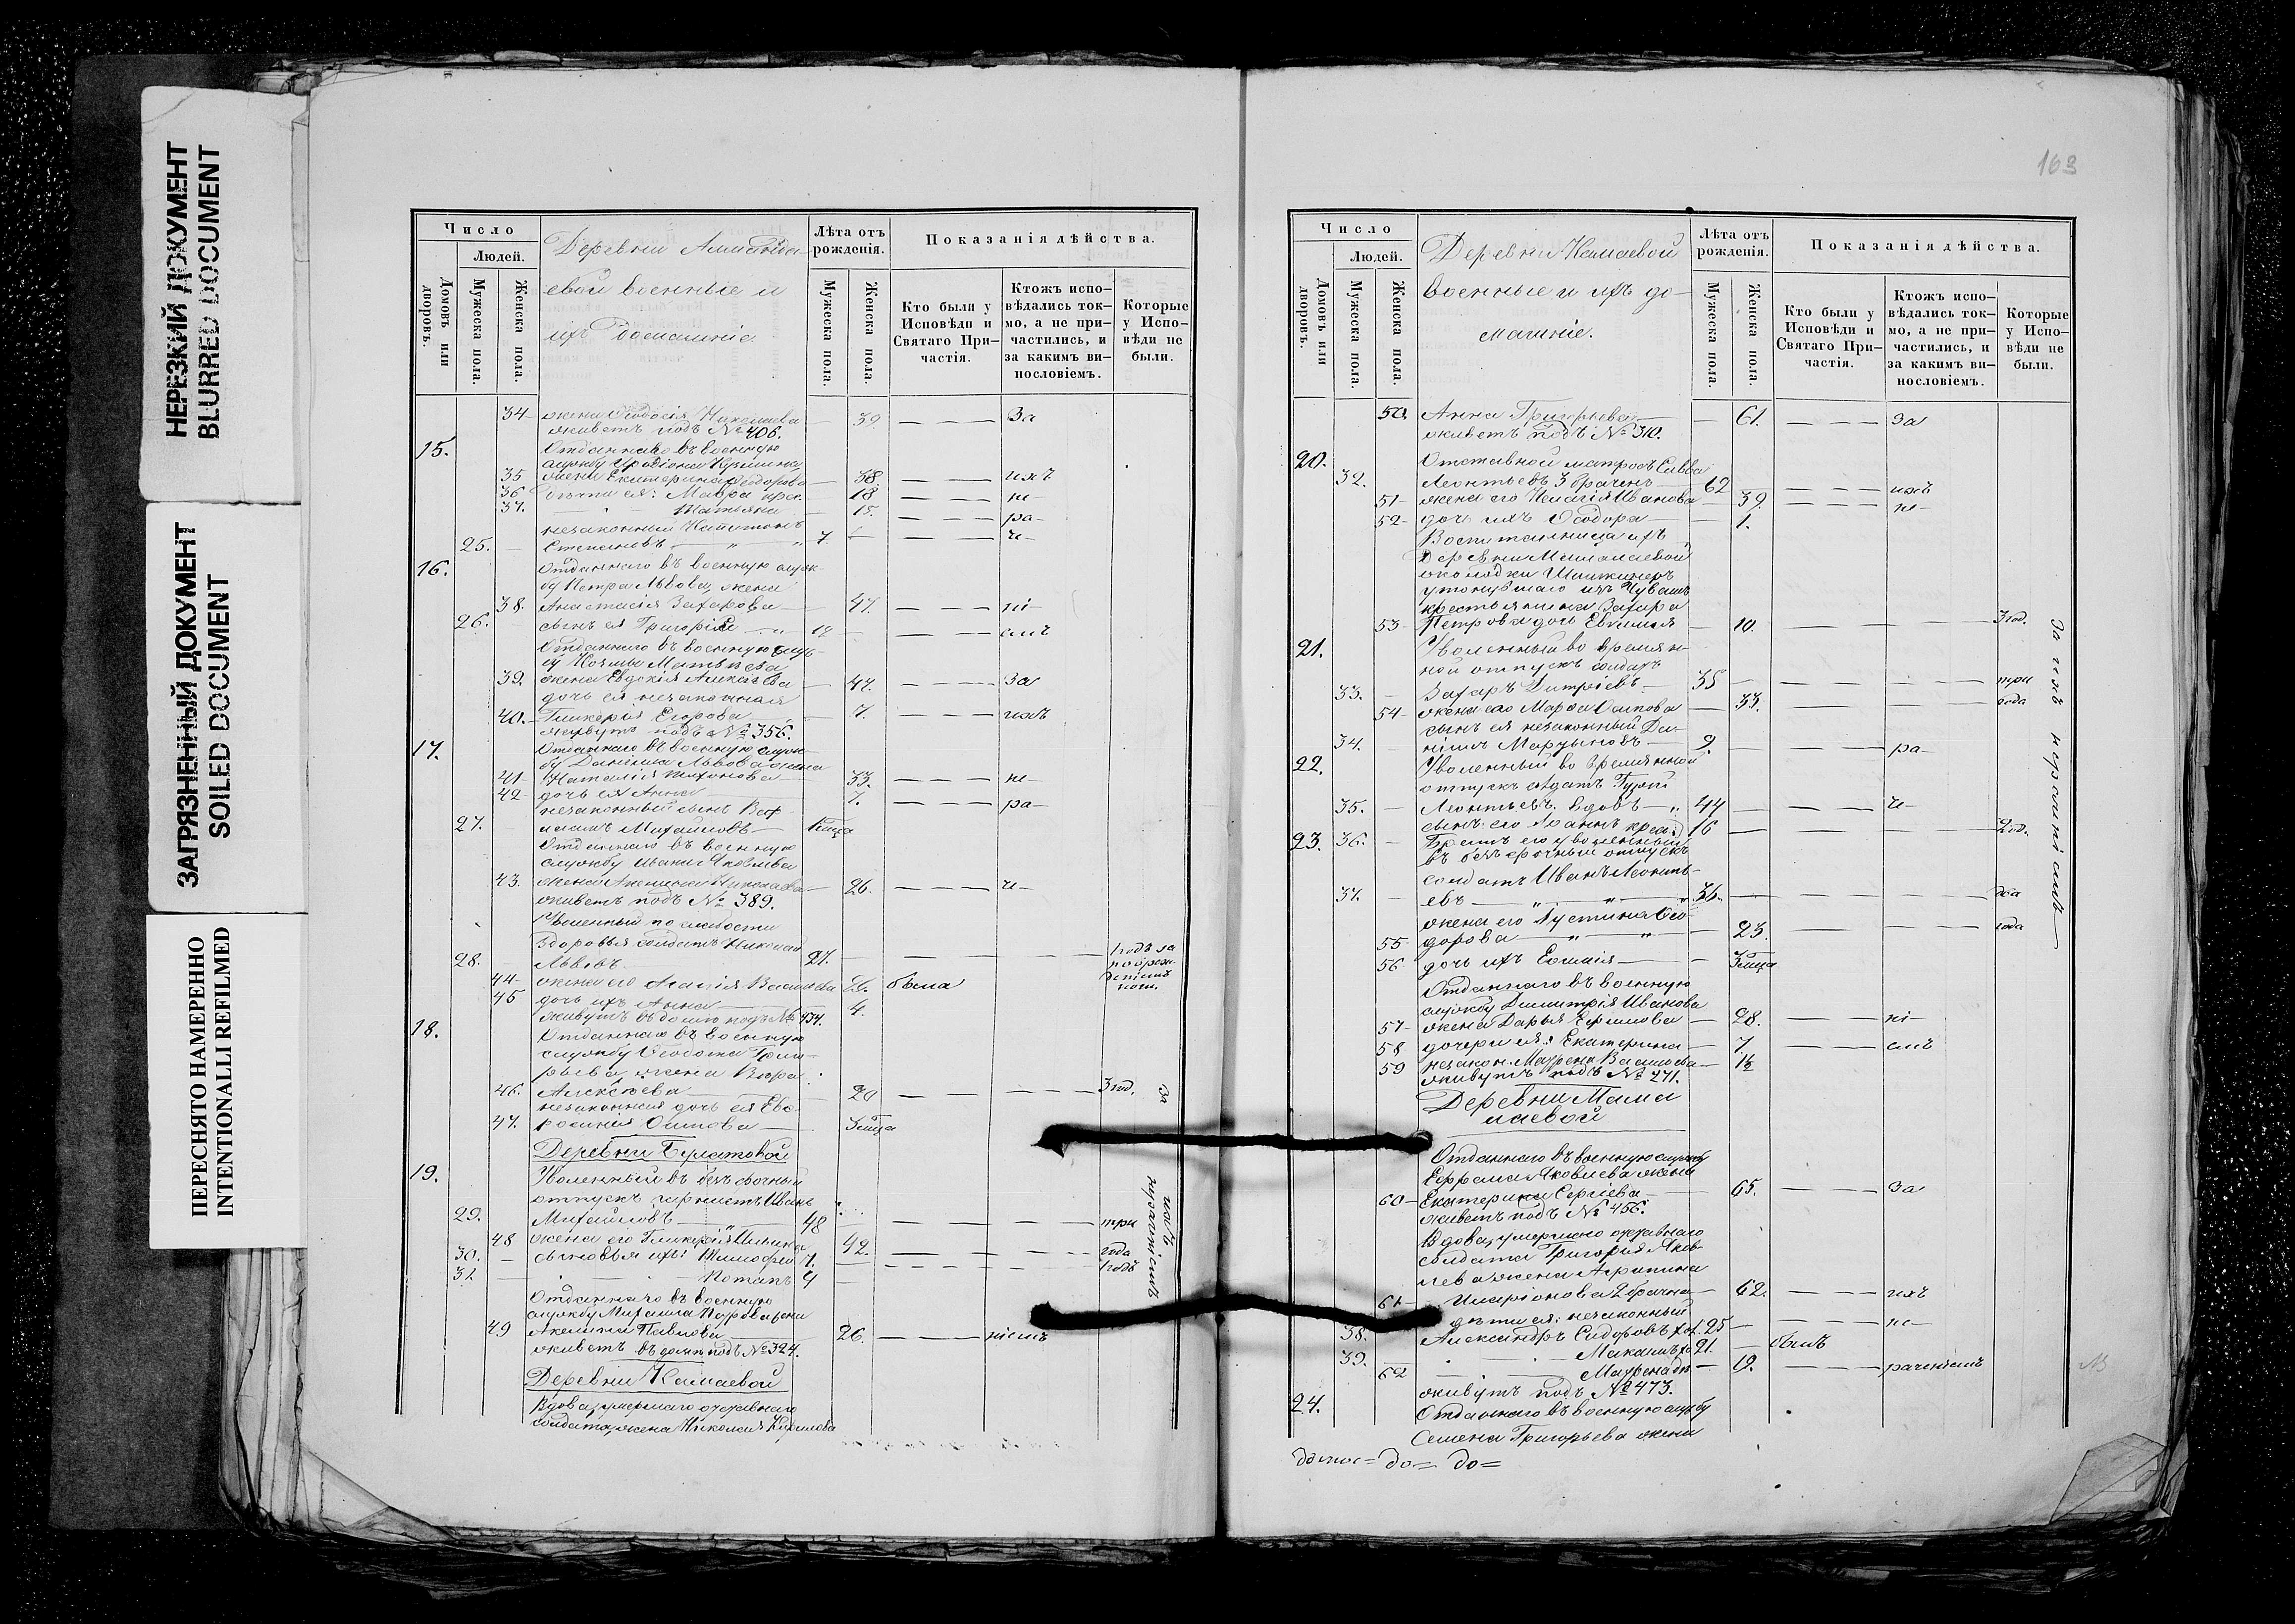 НЕРЕЗКИЙ ДОКУМЕНТ
BLURRED DOCUMENT
ЗАГРЯЗНЕННЫЙ ДОКУМЕНТ
SOILED DOCUMENT
ПЕРЕСНЯТО НАМЕРЕННО
INTENTIONALLI REFILMED
Число
Людей.
Домовъ или дворовъ.
Мужеска пола.
Женска пола.
Деревни
евой военные и
ихъ домашніе
Лѣта отъ рожденія.
Мужеска пола.
Женска пола.
Показанія дѣйства.
Кто были у Исповѣди и Святаго Причастія.
Ктожъ исповѣдались токмо, а не причастились, и за какимъ винословіемъ.
Которые у Исповѣди не были.
34 жена Ѳеодосія 39 За
живетъ подъ № 406.
15. Отданнаго въ военную
службу
35 жена Екатерина Ѳеодорова 38 ихъ
36 Мавра 18 не-
37. Татьяна 15. ра-
незаконный Капитонъ
25. Степановъ 7. че-
16. Отданнаго въ военную служ-
бу Петра Львова жена
38. Анастасія Захарова 47. ні-
26. сынъ ея Григорій 17 емъ
Отданнаго въ военную служ-
бу Козьмы Матвѣева
39. жена Евдокія Алексѣева 47. За
дочь ея незаконная
40. Гликерія Егорова 7. ихъ
живутъ подъ № 356.
17. Отданнаго въ военную служ-
бу Даніила Львова жена
41 Наталія 33. не-
42 дочь ея Анна 7. ра-
незаконный сынъ
27. Михайловъ
Отданнаго въ военную
службу Ивана Яковлева
43. жена Николаева 26. че-
живетъ подъ № 389.
по слабости
здоровья солдатъ Николай
28. Львовъ 27. 1 годъ за
44 жена его Васильева 26. была
45 дочь ихъ Анна 4.
живутъ въ домѣ подъ № 434.
18. Отданнаго въ военную
службу Ѳеодота Григо-
рьева жена Вѣра
46. Алексѣева 20 3 год. за
незаконная дочь ея Евѳ-
47. росинія Осипова
Деревни Булатовой
19. Уволенный въ безсрочный
отпускъ Иванъ
29. Михайловъ 48 три
48 жена его Гликерія Ильина 42. года
30. сыновья ихъ: Тимофей 7. 1 годъ
31. Потапъ 4
ихъ нераченіемъ
Отданнаго въ военную
службу Михаила Петрова жена
49 Акелина Павлова 26. ніемъ
живетъ въ домѣ подъ № 324.
Деревни Камаевой
Вдова, умершаго отставнаго
солдата, жена Николая Кирилова
163
Число
Людей.
Домовъ или дворовъ.
Мужеска пола.
Женска пола.
Деревни Камаевой
военные и ихъ до-
машніе.
Лѣта отъ рожденія.
Мужеска пола.
Женска пола.
Показанія дѣйства.
Кто были у Исповѣди и Святаго Причастія.
Ктожъ исповѣдались токмо, а не причастились, и за какимъ винословіемъ.
Которые у Исповѣди не были.
50. Анна Григорьева 61. За
живетъ подъ № 310.
20. Отставной матросъ Савва
32. Леонтьевъ 3 браченъ 62 ихъ
51 жена его Пелагія Иванова 39. не-
52 дочь ихъ Ѳеодора 1.
Воспитанница ихъ
Деревни Мамалаевой
околодки
утонувшаго изъ Чувашъ
крестьянина Захара
53 Петрова дочь Евѳимія 10. 3 год.
21. Уволенный во времян-
ной отпускъ солдатъ
33. Захаръ Дмитріевъ 35 три
54 жена его Марѳа Осипова 33. года
сынъ ея незаконный Да-
34. ніилъ Мартыновъ 9. ра-
22. Уволенный во времянной
отпускъ солдатъ Гурій
35. Леонтьевъ вдовъ 44 че-
сынъ его Іоаннъ 16 2 год.
23. 36. Братъ его уволенный
въ безсрочный отпускъ
солдатъ Иванъ Леонть-
37. евъ 36. два
жена его Іустина Ѳео-
55 дорова 23. года
56 дочь ихъ
За ихъ нераченіемъ
Отданнаго въ военную
службу Димитрія Иванова
57 жена Дарья Ефимова 28. ні-
58 дочери ея: Екатерина 7. емъ
59 незакон. Матрена Васильева 1½
живутъ подъ № 271.
Деревни Мама
лаевой
Отданнаго въ военную службу
Ефрема Яковлева жена
60 Екатерина Сергіева 65. За
живетъ подъ № 456.
Вдова, умершаго отставнаго
солдата Григорія Яков-
лева жена Агрипина
61 Иларіонова 2 брачна 62. ихъ
дѣти ея: незаконный не-
38. Александръ Сидоровъ хол. 25
39. Максимъ 21. былъ
62 Матрена 19. раченіемъ
живутъ подъ № 473.
24. Отданнаго въ военную службу
Семена Григорьева жена